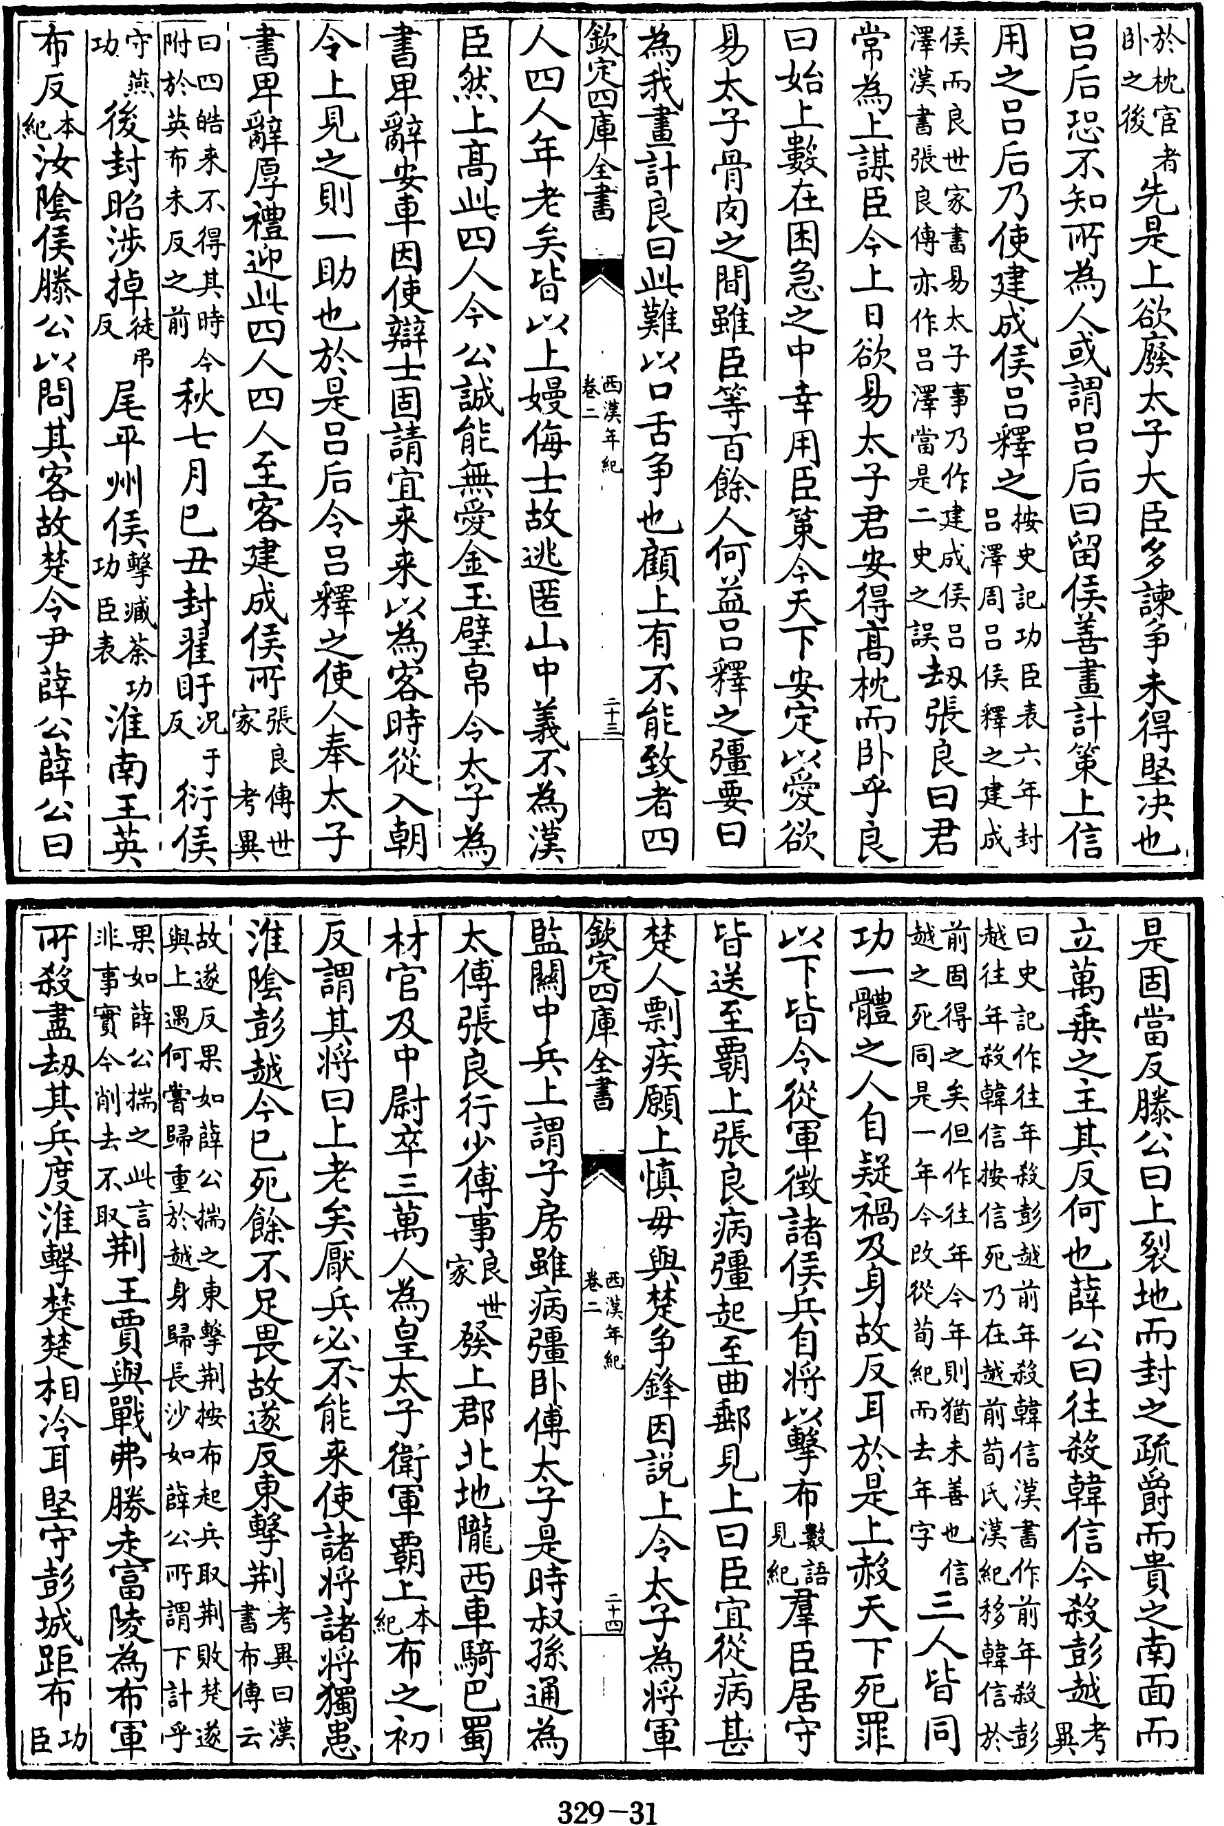 於枕宦者卧之後先是上欲廢太子大臣多諫争未得堅决也
吕后恐不知所為人或謂吕后曰留侯善畫計策上信
用之吕后乃使建成侯吕釋之按史記功臣表六年封吕澤周吕侯釋之建成
侯而良世家書易太子事乃作建成侯吕澤漢書張良傳亦作吕澤當是二史之誤刼張良曰君
常為上謀臣今上日欲易太子君安得髙枕而卧乎良
曰始上數在困急之中幸用臣策今天下安定以愛欲
易太子骨肉之間雖臣等百餘人何益吕釋之彊要曰
為我畫計良曰此難以口舌争也顧上有不能致者四
欽定四庫全書 西漢年紀卷二 二十三
人四人年老矣皆以上嫚侮士故逃匿山中義不為漢
臣然上髙此四人今公誠能無愛金玉璧帛令太子為
書卑辭安車因使辯士固請宜来来以為客時從入朝
令上見之則一助也於是吕后令吕釋之使人奉太子
書卑辭厚禮迎此四人四人至客建成侯所張良傳世家 考異
曰四皓来不得其時今附於英布未反之前秋七月巳丑封翟盱况于反衍侯
守燕功後封昭涉掉徒弔反尾平州侯擊臧荼功功臣表淮南王英
布反本紀汝隂侯滕公以問其客故楚令尹薛公薛公曰
是固當反滕公曰上裂地而封之疏爵而貴之南面而
立萬乗之主其反何也薛公曰往殺韓信今殺彭越考異
曰史記作往年殺彭越前年殺韓信漢書作前年殺彭越往年殺韓信按信死乃在越前荀氏漢紀移韓信於
前固得之矣但作往年今年則猶未善也信越之死同是一年今改從荀紀而去年字三人皆同
功一體之人自疑禍及身故反耳於是上赦天下死罪
以下皆令從軍徴諸侯兵自将以擊布數語見紀羣臣居守
皆送至覇上張良病彊起至曲郵見上曰臣宜從病甚
楚人剽疾願上慎毋與楚争鋒因説上令太子為将軍
欽定四庫全書 西漢年紀卷二 二十四
監關中兵上謂子房雖病彊卧傅太子是時叔孫通為
太傅張良行少傅事良世家發上郡北地隴西車騎巴蜀
材官及中尉卒三萬人為皇太子衛軍覇上本紀布之初
反謂其将曰上老矣厭兵必不能来使諸将諸将獨患
淮隂彭越今已死餘不足畏故遂反東擊荆考異曰漢書布傳云
故遂反果如薛公揣之東擊荆按布起兵取荆敗楚遂與上遇何嘗歸重於越身歸長沙如薛公所謂下計乎
果如薛公揣之此言非事實今削去不取荆王賈與戰弗勝走富陵為布軍
所殺盡刼其兵度淮擊楚楚相冷耳堅守彭城距布功臣
329-31